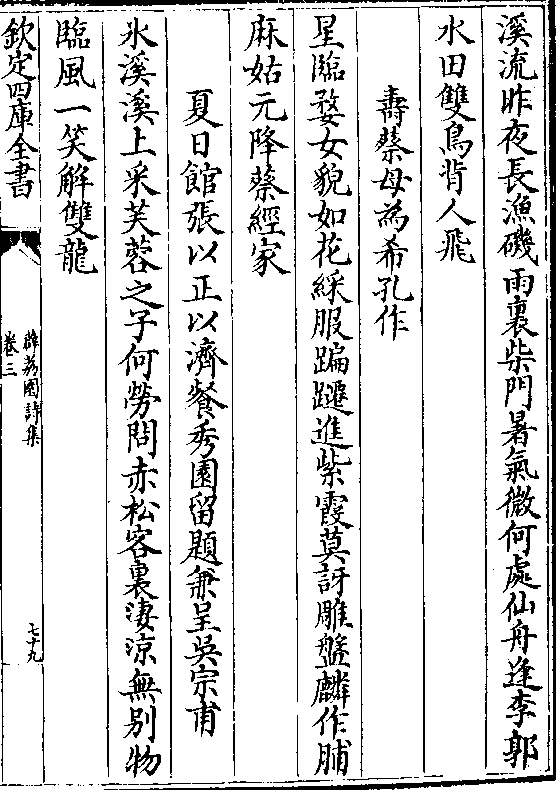 溪流昨夜長漁磯雨裏柴門暑氣微何處仙舟逢李郭
水田雙鳥背人飛
壽蔡母為希孔作
星臨婺女貌如花綵服蹁躚進紫霞莫訝雕盤麟作脯
麻姑元降蔡經家
夏日館張以正以濟餐秀園留題兼呈吳宗甫
氷溪溪上采芙蓉之子何勞問赤松客裏淒涼無别物
臨風一笑解雙龍
欽定四庫全書
薜荔園詩集
卷三
七十九